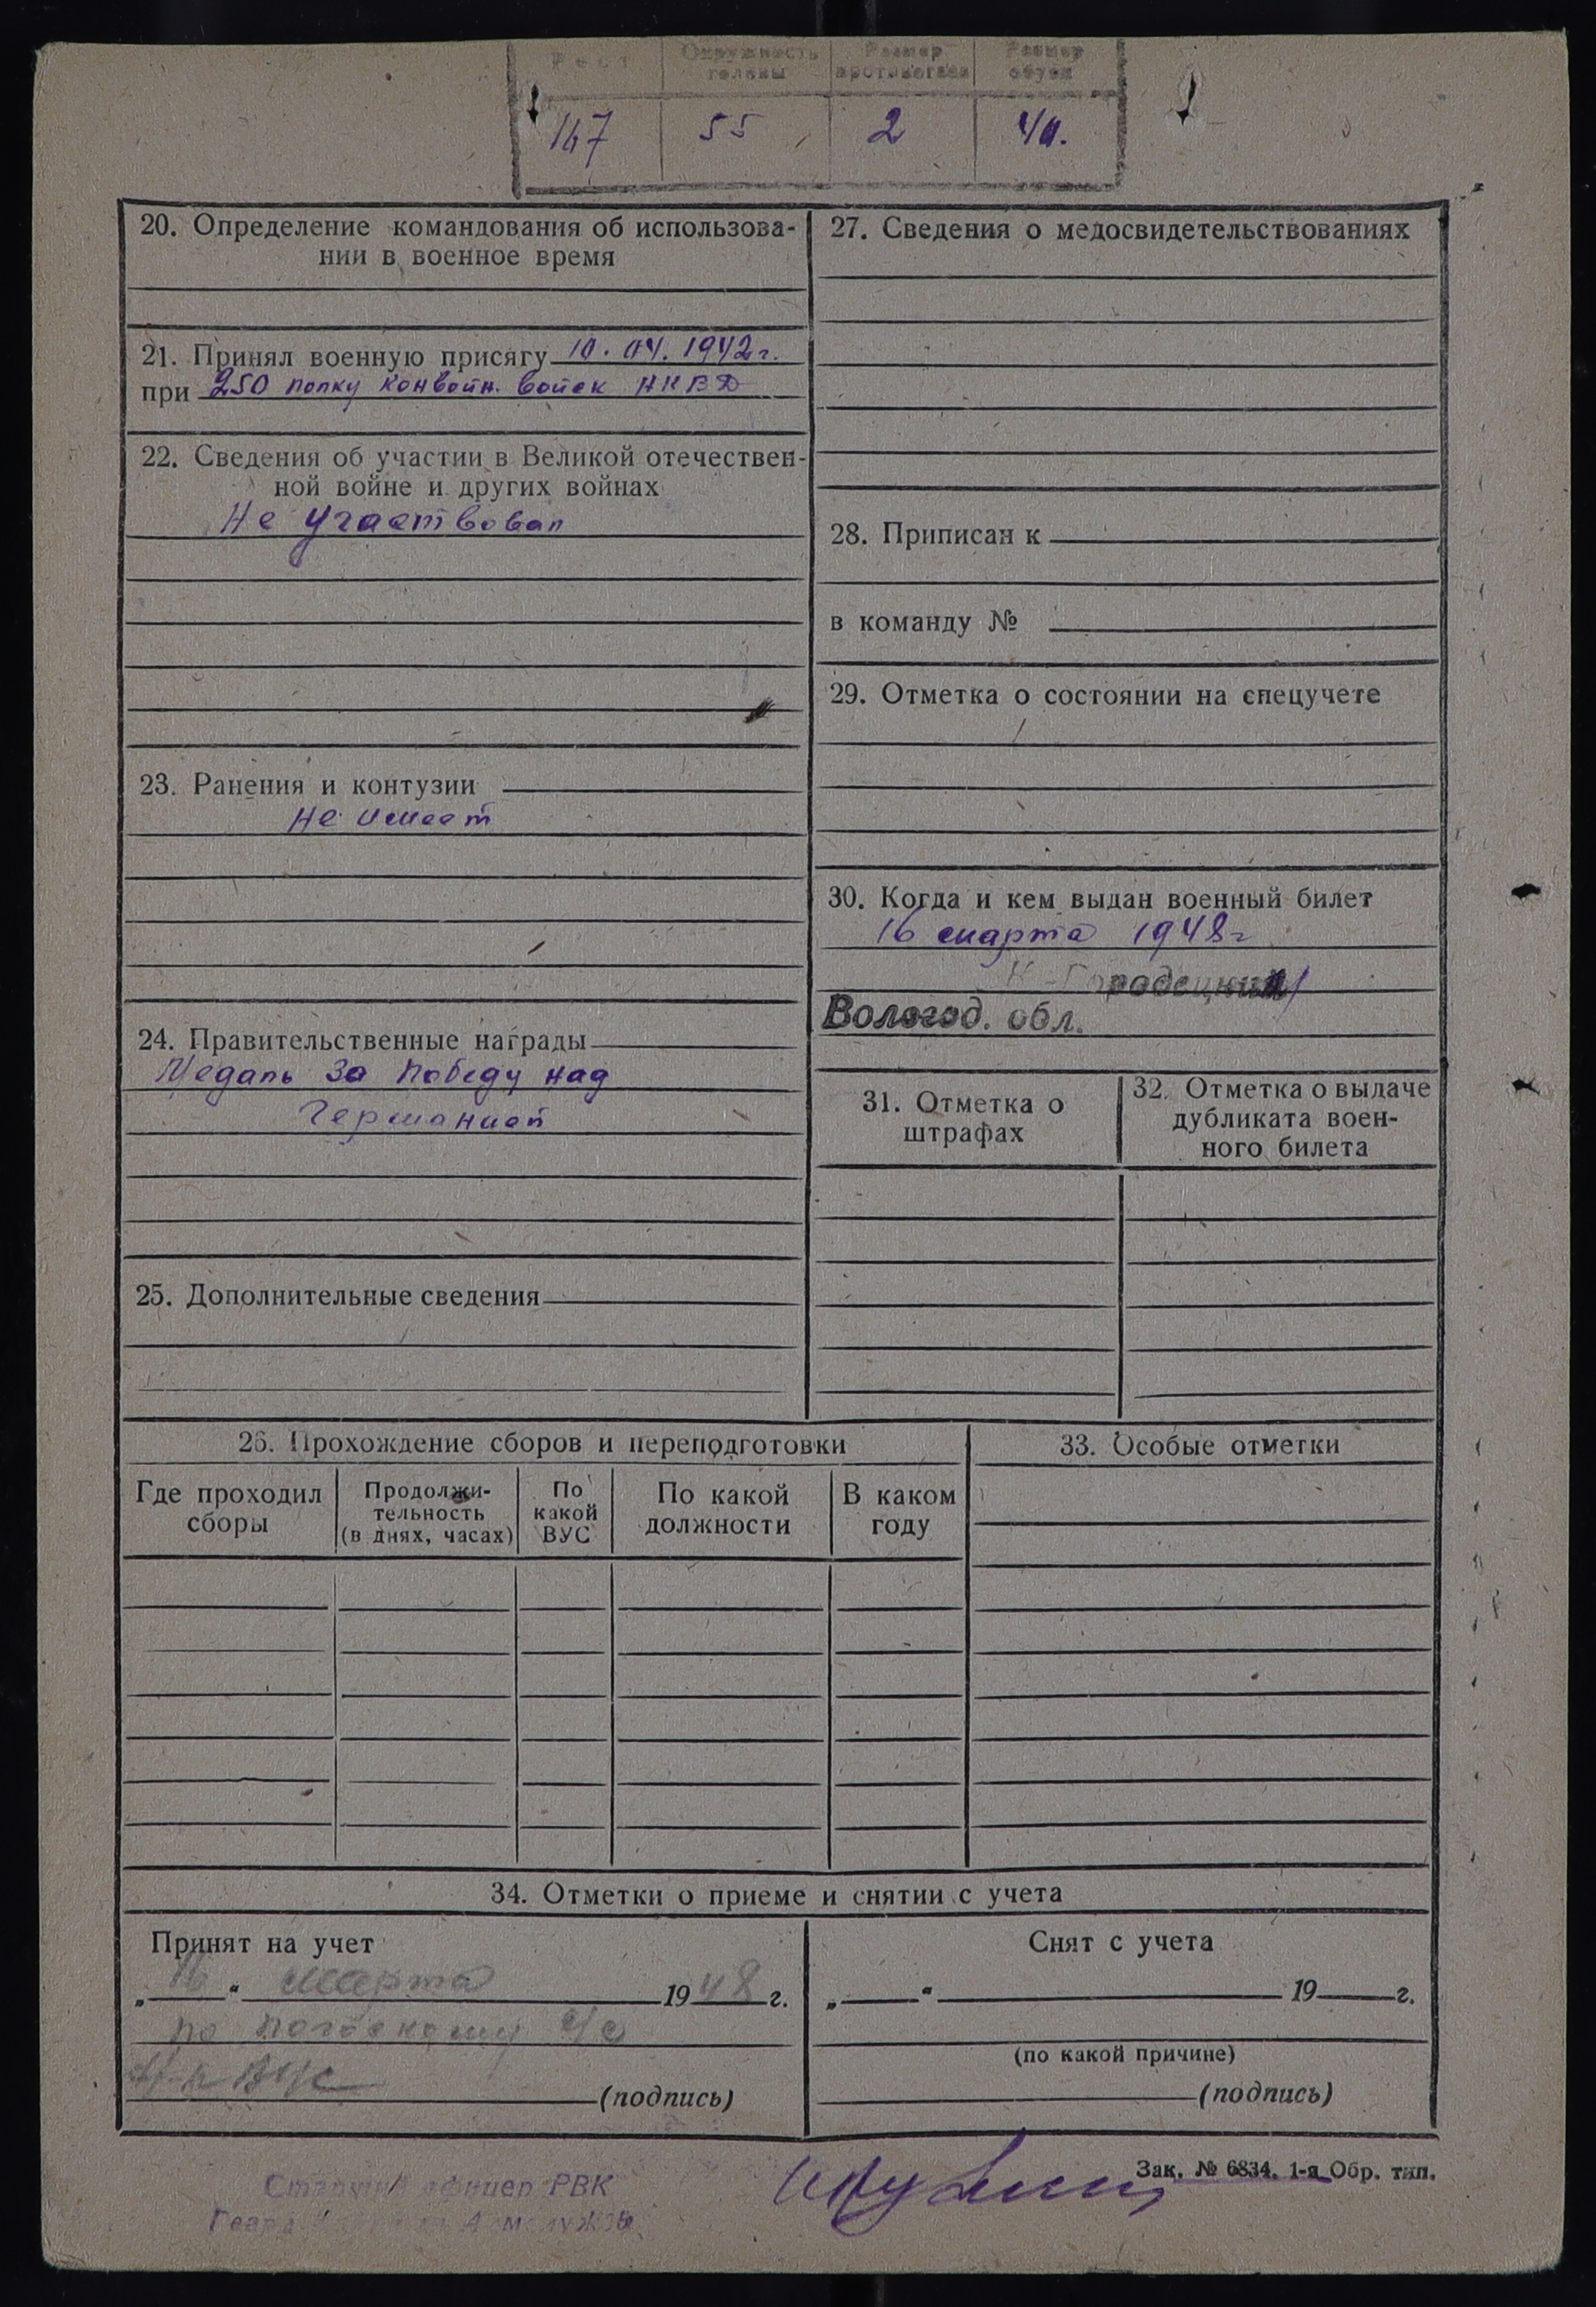 Рост Окружность головы Размер противогаза Размер обуви
167 55 2 40.
20. Определение командования об использова-
нии в военное время
21. Принял военную присягу 10. 04. 1942 г.
при 250 полку конвойн. войск НКВД
22. Сведения об участии в Великой отечествен-
ной войне и других войнах
Не участвовал
23. Ранения и контузии
Не имеет
24. Правительственные награды
Медаль За Победу над
Германией
25. Дополнительные сведения
27. Сведения о медосвидетельствованиях
28. Приписан к
в команду №
29. Отметка о состоянии на спецучете
30. Когда и кем выдан военный билет
16 марта 1948 г
К-Городецким
Вологод. обл.
31. Отметка о
штрафах
32. Отметка о выдаче
дубликата воен-
ного билета
26. Прохождение сборов и переподготовки
Где проходил
сборы
Продолжи-
тельность
(в днях, часах)
По
какой
ВУС
По какой
должности
В каком
году
33. Особые отметки
34. Отметки о приеме и снятии с учета
Принят на учет
„16“ марта 1948 г.
по с/с
(подпись)
Снят с учета
„ “ 19 г.
(по какой причине)
(подпись)
Зак. № 6834. 1-я Обр. тип.
Старший офицер РВК